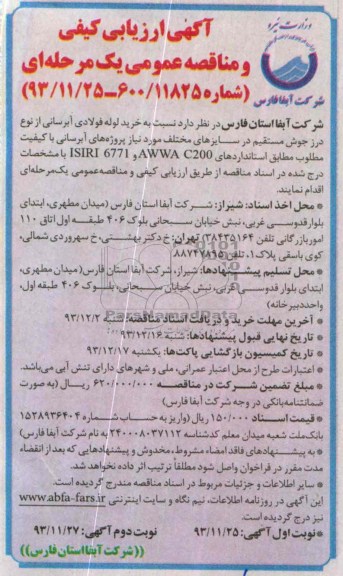 وزارت نیرو
شرکت آبفا فارس
آگهی ارزیابی کیفی
و مناقصه عمومی یک مرحله‌ای
(شماره ۶۰۰/۱۱۸۲۵-۹۳/۱۱/۲۵)
شرکت آبفا استان فارس در نظر دارد نسبت به خرید لوله فولادی آبرسانی از نوع
درز جوش مستقیم در سایزهای مختلف مورد نیاز پروژه‌های آبرسانی با کیفیت
مطلوب مطابق استانداردهای AWWA C200 و ISIRI 6771 با مشخصات
درج شده در اسناد مناقصه از طریق ارزیابی کیفی و مناقصه‌عمومی یک‌مرحله‌ای
اقدام نمایند.
* محل اخذ اسناد: شیراز: شرکت آبفا استان فارس (میدان مطهری، ابتدای
بلوار قدوسی غربی، نبش خیابان سبحانی بلوک ۴۰۶ طبقه اول اتاق ۱۱۰
امور بازرگانی تلفن ۳۸۴۳۵۱۶۴) تهران: خ دکتر بهشتی، خ سهروردی شمالی،
کوی باسقی پلاک ۱، تلفن ۸۸۷۴۷۸۱۵
* محل تسلیم پیشنهادها: شیراز، شرکت آبفا استان فارس (میدان مطهری،
ابتدای بلوار قدوسی غربی، نبش خیابان سبحانی، بلوک ۴۰۶ طبقه اول،
واحد دبیرخانه)
* آخرین مهلت خرید و دریافت اسناد مناقصه: ۹۳/۱۲/۲
* تاریخ نهایی قبول پیشنهادها: شنبه ۹۳/۱۲/۱۶
* تاریخ کمیسیون بازگشایی پاکت‌ها: یکشنبه ۹۳/۱۲/۱۷
* اعتبارات طرح از محل اعتبار عمرانی، ملی و شهرهای دارای تنش آبی می‌باشد.
* مبلغ تضمین شرکت در مناقصه ۶۲۰/۰۰۰/۰۰۰ ریال (به صورت
ضمانتنامه‌بانکی در وجه شرکت آبفا فارس)
* قیمت اسناد ۱۵۰/۰۰۰ ریال (واریز به حساب شماره ۱۵۲۸۹۳۶۴۰۴
بانک‌ملت شعبه میدان معلم کدشناسه ۲۴۰۰۰۸۰۳۷۱۱۲ به نام شرکت آبفا فارس)
* به پیشنهادهای فاقد امضاء مشروط، مخدوش و پیشنهادهایی که بعد از انقضاء
مدت مقرر در فراخوان واصل شود مطلقاً ترتیب اثر داده نخواهد شد.
* سایر اطلاعات و جزئیات مربوط در اسناد مناقصه مندرج گردیده است.
این آگهی در روزنامه اطلاعات، نیم نگاه و سایت اینترنتی www.abfa-fars.ir
نیز درج گردیده است.
* نوبت اول آگهی: ۹۳/۱۱/۲۵ نوبت دوم آگهی: ۹۳/۱۱/۲۷
((شرکت آبفا استان فارس))